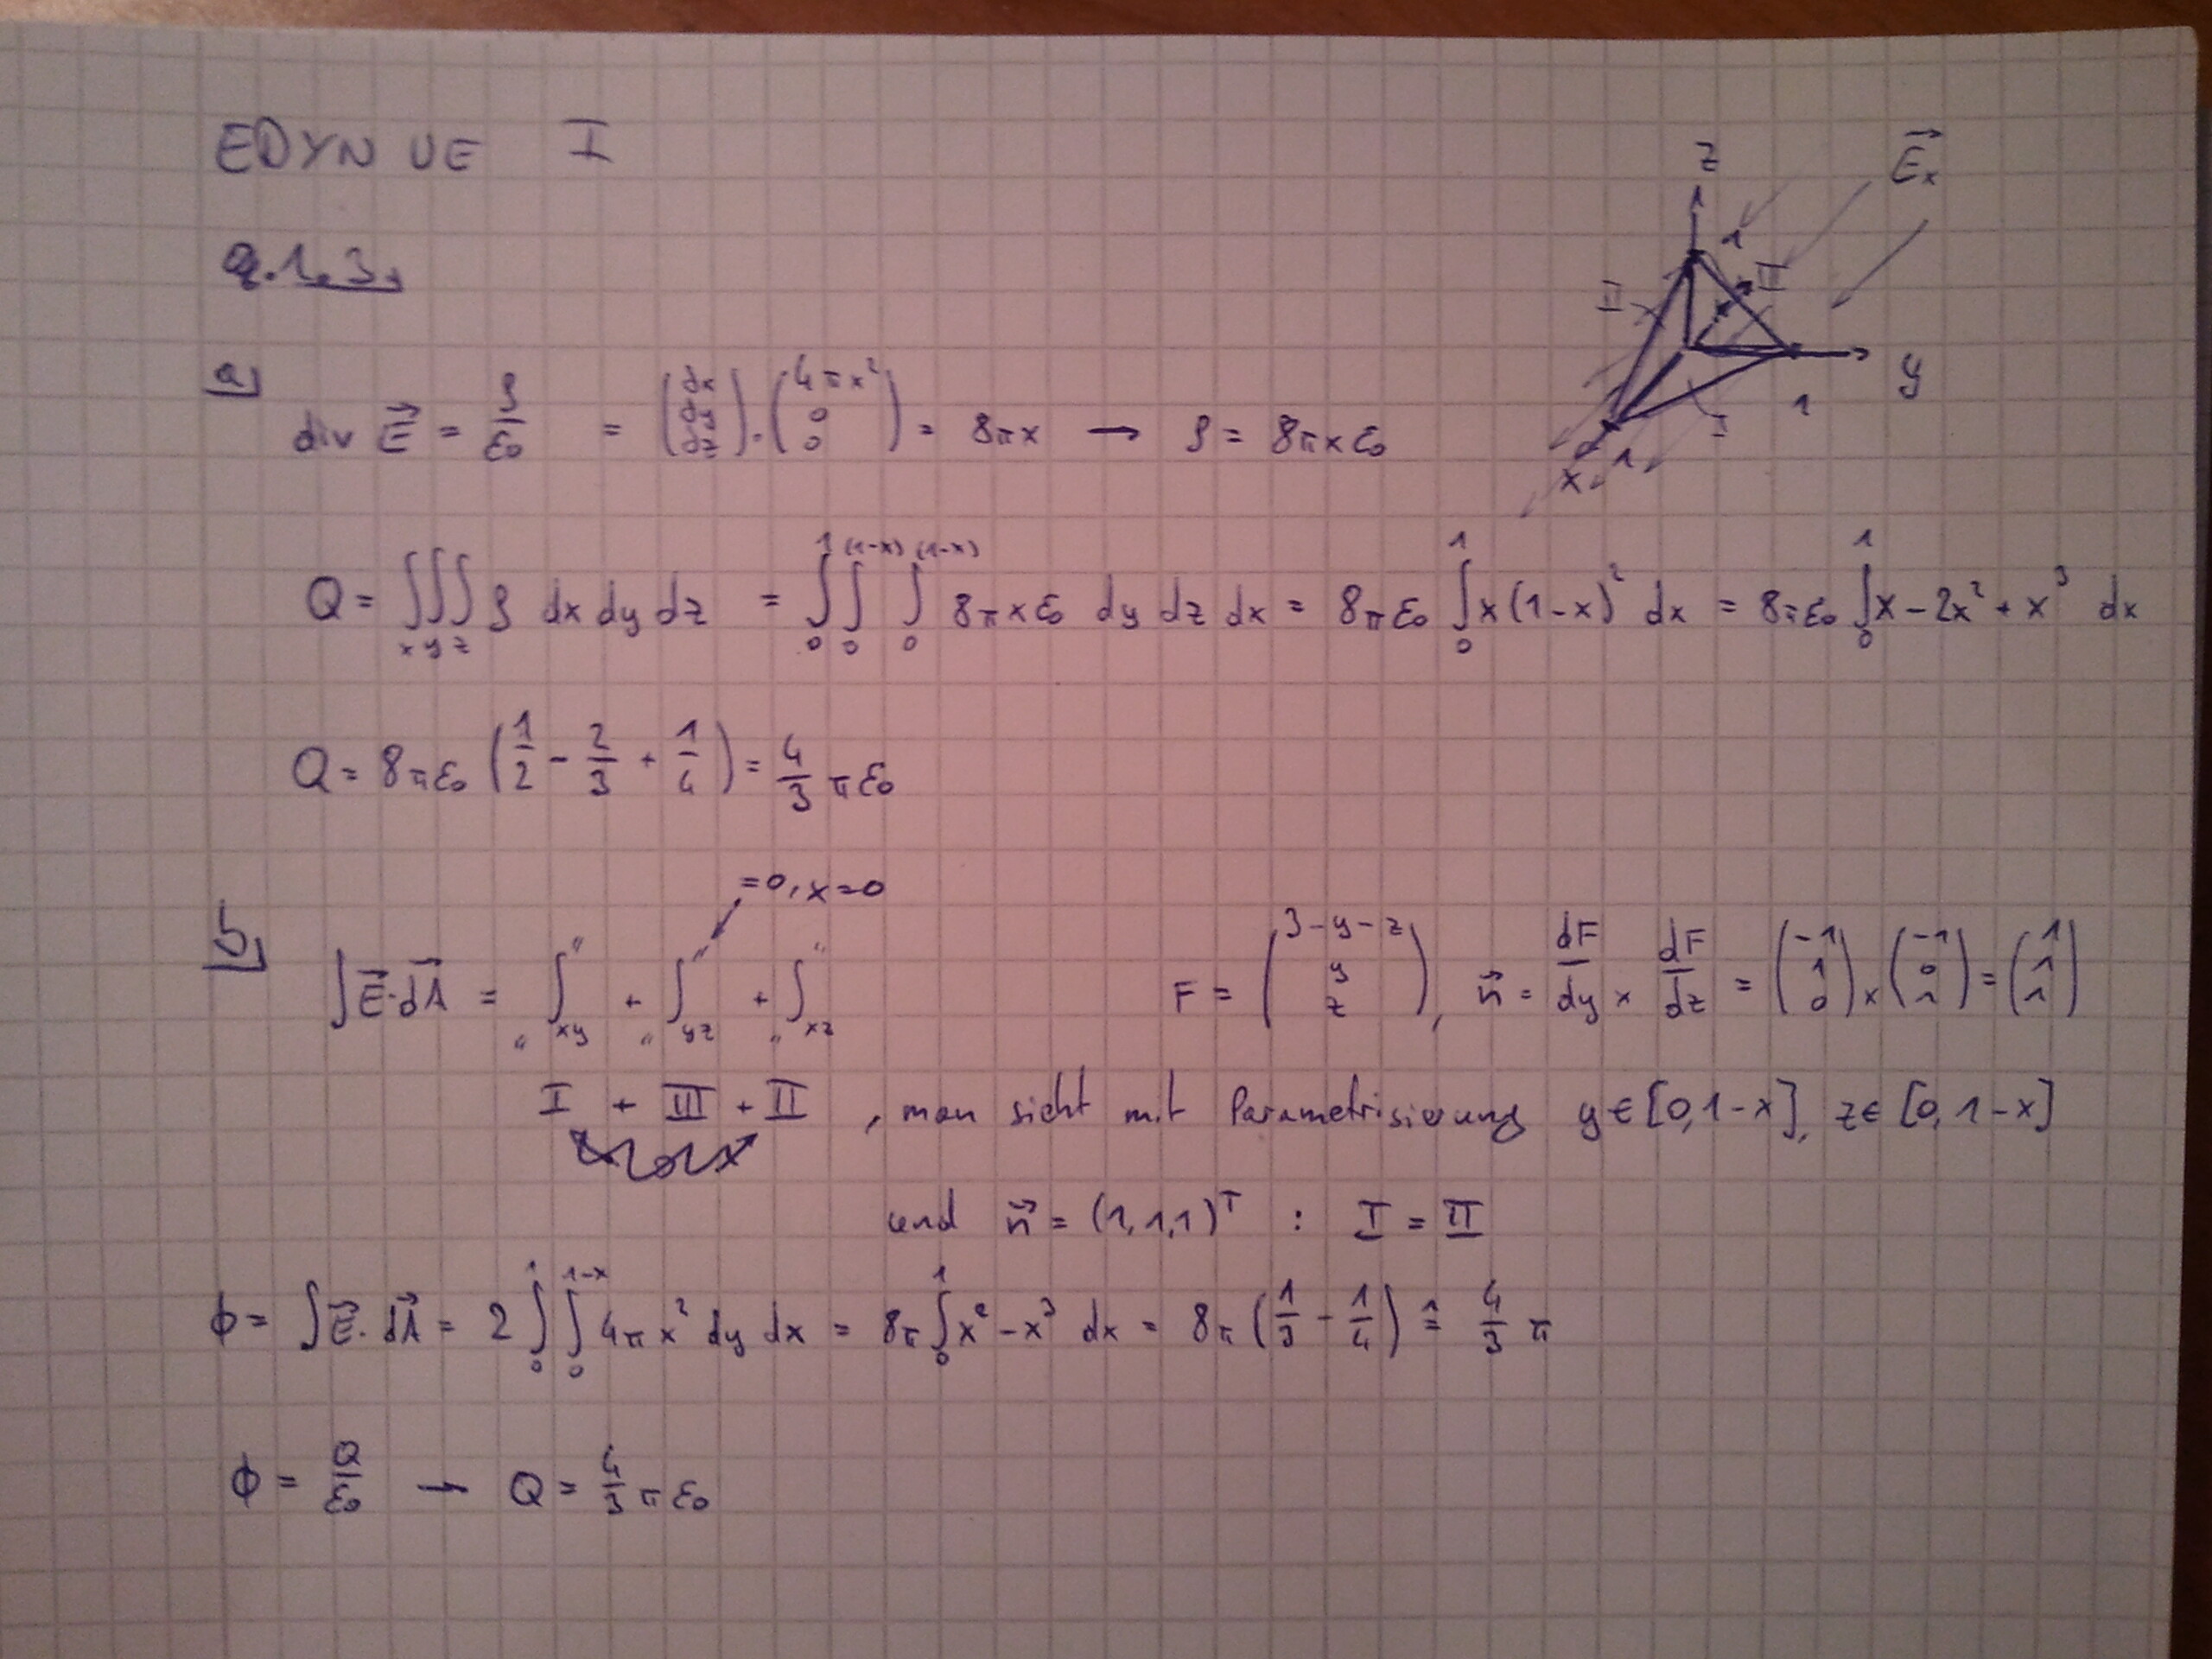 EDYN UE I
z
E⃗ₓ
1
II
III
y
1
I
x
1
Q.1.3.
a)
div E⃗ = ρ/ε₀ = (dx dy dz) · (4πx² 0 0) = 8πx → ρ = 8πxε₀
Q = ∫∫∫ₓ y z ρ dx dy dz = ∫₀¹ ∫₀^(1-x) ∫₀^(1-x) 8πxε₀ dy dz dx = 8πε₀ ∫₀¹ x(1-x)² dx = 8πε₀ ∫₀¹ x - 2x² + x³ dx
Q = 8πε₀ (1/2 - 2/3 + 1/4) = 4/3 πε₀
=0, x=0
b)
∫E⃗·dA⃗ = "∫"xy + "∫"yz + "∫"xz F = (3-y-z y z), n⃗ = dF/dy × dF/dz = (-1 1 0) × (-1 0 1) = (1 1 1)
I + III + II , man sieht mit Parametrisierung y∈[0,1-x], z∈[0,1-x]
und n⃗ = (1,1,1)ᵀ : I = II
ϕ = ∫E⃗·dA⃗ = 2 ∫₀¹ ∫₀^(1-x) 4πx² dy dx = 8π ∫₀¹ x² - x³ dx = 8π (1/3 - 1/4) ≙ 4/3 π
ϕ = Q/ε₀ → Q = 4/3 πε₀